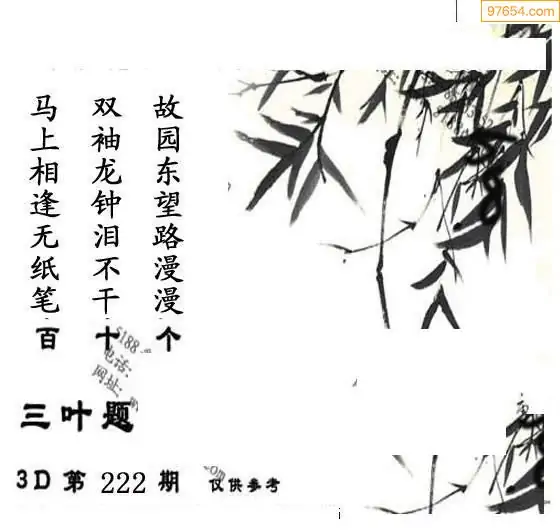 97654.com
故园东望路漫漫
双袖龙钟泪不干
马上相逢无纸笔
百 十 个
5188
电话：
网址：
三叶题
3D第222期 仅供参考